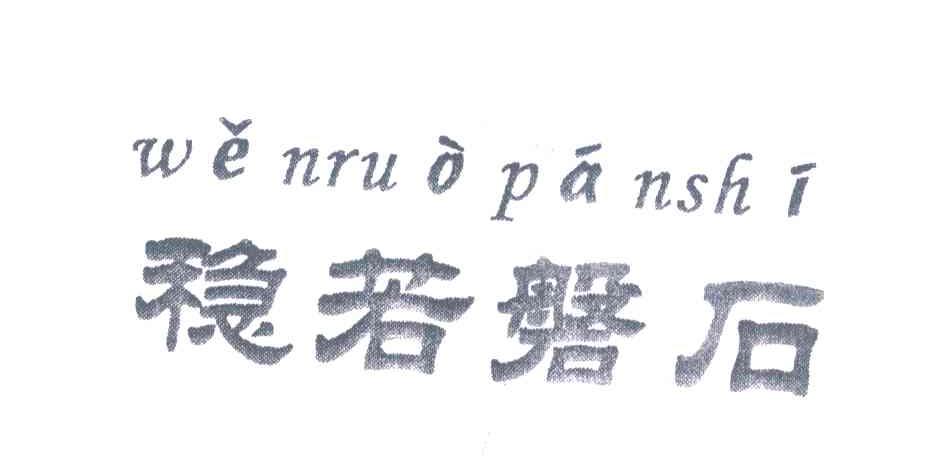 wěnruòpánshí
稳若磐石